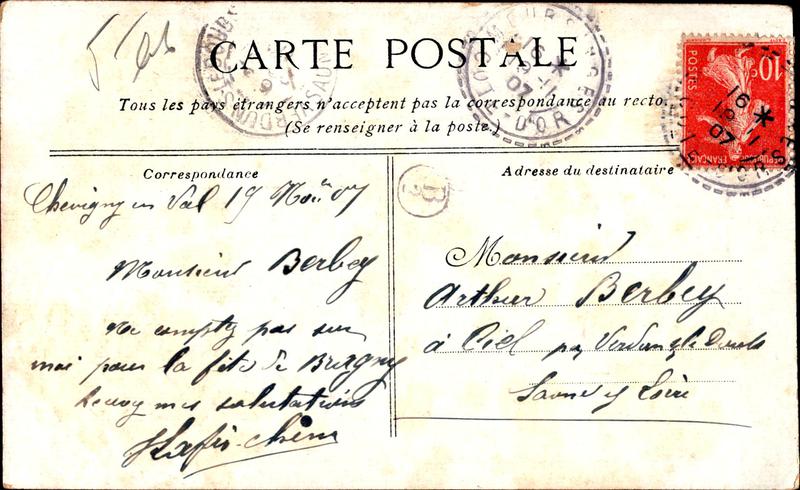 CARTE POSTALE
Tous les pays étrangers n'acceptent pas la correspondance au recto.
(Se renseigner à la poste.)
Correspondance
Chevigny en Val 19 Nov 07
Monsieur Berbey
Ne comptez pas sur
moi pour la fête de Bragny
Recevez mes salutations
Adresse du destinataire
Monsieur
Arthur Berbey
à Ciel par Verdun s/ le Doubs
Saone et Loire
10c
POSTES
REPUBLIQUE FRANÇAISE
16 *
19 -11
07
16 *
19 11
07